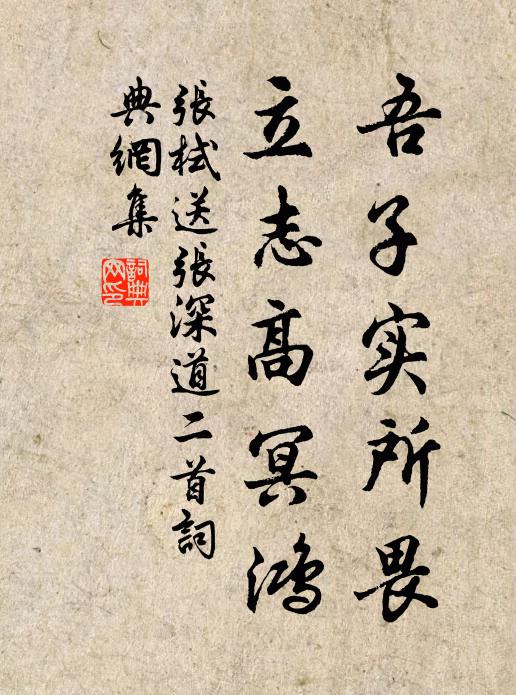 吾子实所畏
立志高冥鸿
張栻送張深道二首詞
典網集
詞典
网印